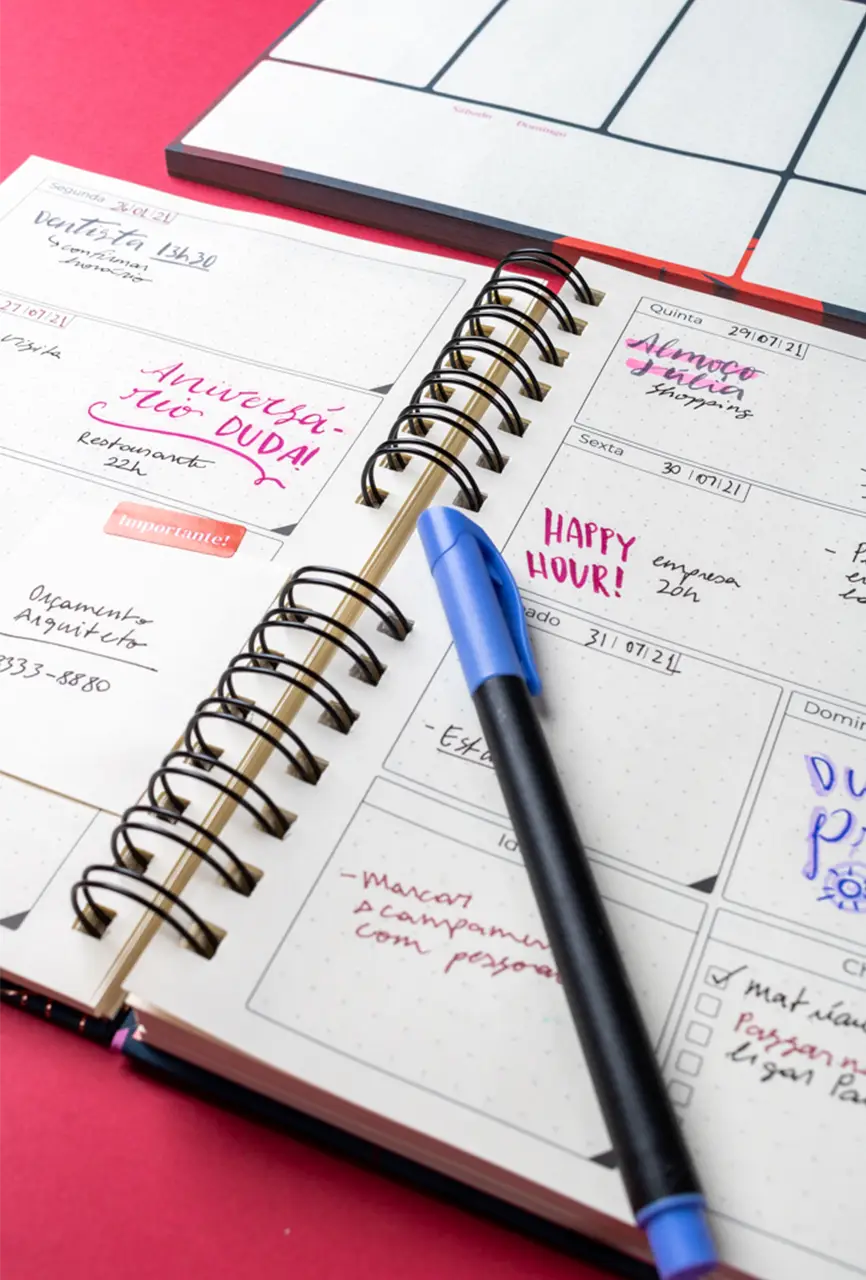 Sábado Domingo
Segunda 26|07|21
Dentista 13h30
↳ confirmar
horário
27|07|21
visita
Aniversá-
rio DUDA!
Restaurante
22h
Importante!
Orçamento
Arquiteto
3333-8880
Quinta 29|07|21
Almoço
Júlia
shopping
Sexta 30|07|21
HAPPY
HOUR!
empresa
20h
ado 31|07|21
- Est
Domin
DU
Id
- Marcar
acampamen
com pessoa
Ch
✓ mat
Passar
ligar Pa